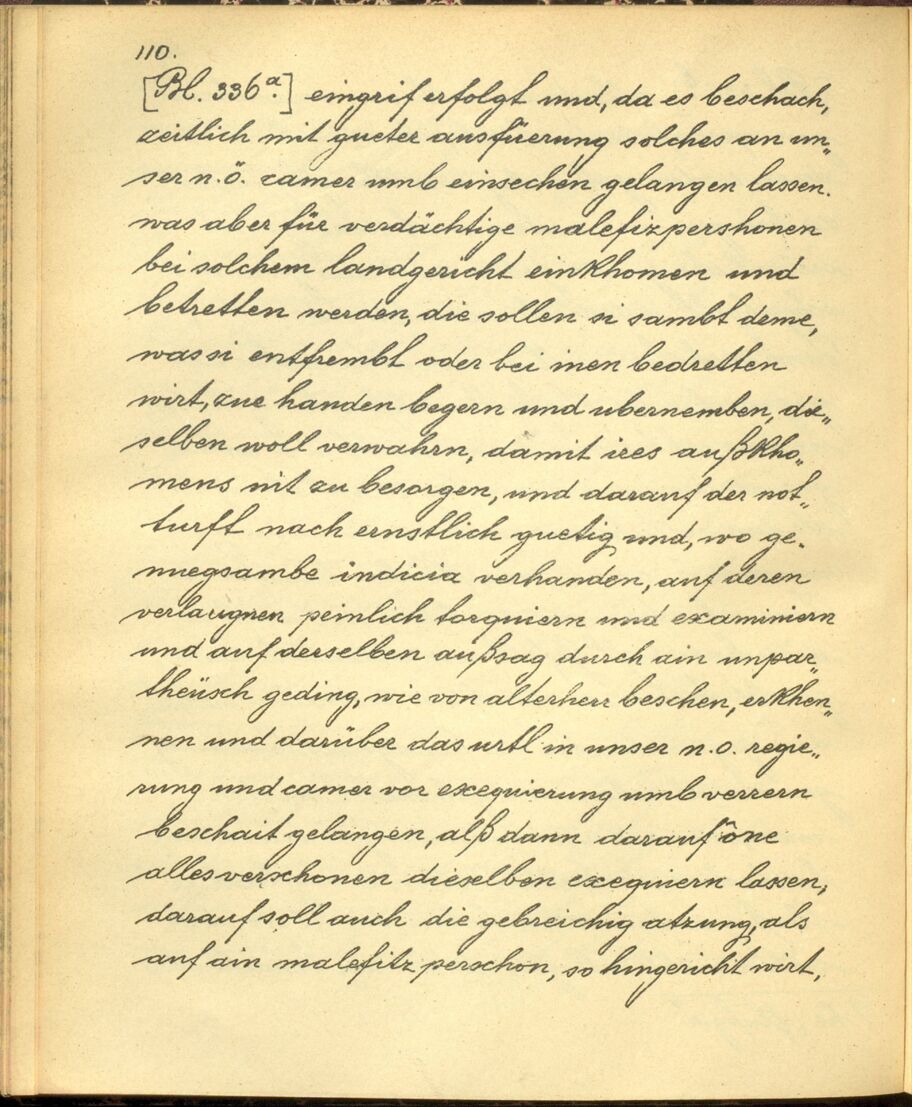 110.
[Bl. 336ª.] eingrif erfolgt und, da es beschach,
zeitlich mit gueter ausfüerung solches an un„
ser n. ö. camer umb einsechen gelangen lassen.
was aber für verdächtige malefizpershonen
bei solchem landgericht einkhomen und
betretten werden, die sollen si sambt deme,
was si entfrembt oder bei inen bedretten
wirt, zue handen begern und ubernemben, die„
selben woll verwahrn, damit ires außkho„
mens nit zu besorgen, und darauf der not„
turft nach ernstlich guetig und, wo ge„
nuegsambe indicia verhanden, auf deren
verlaugnen peinlich torquiern und examiniern
und auf derselben außsag durch ain unpar„
theüsch geding, wie von alterherr beschen, erkhen„
nen und darüber das urtl in unser n. o. regie„
rung und camer vor exequierung umb verrern
beschait gelangen, alß dann darauf one
alles verschonen dieselben exequiern lassen,
darauf soll auch die gebreichig atzung, als
auf ain malefitz perschon, so hingericht wirt,